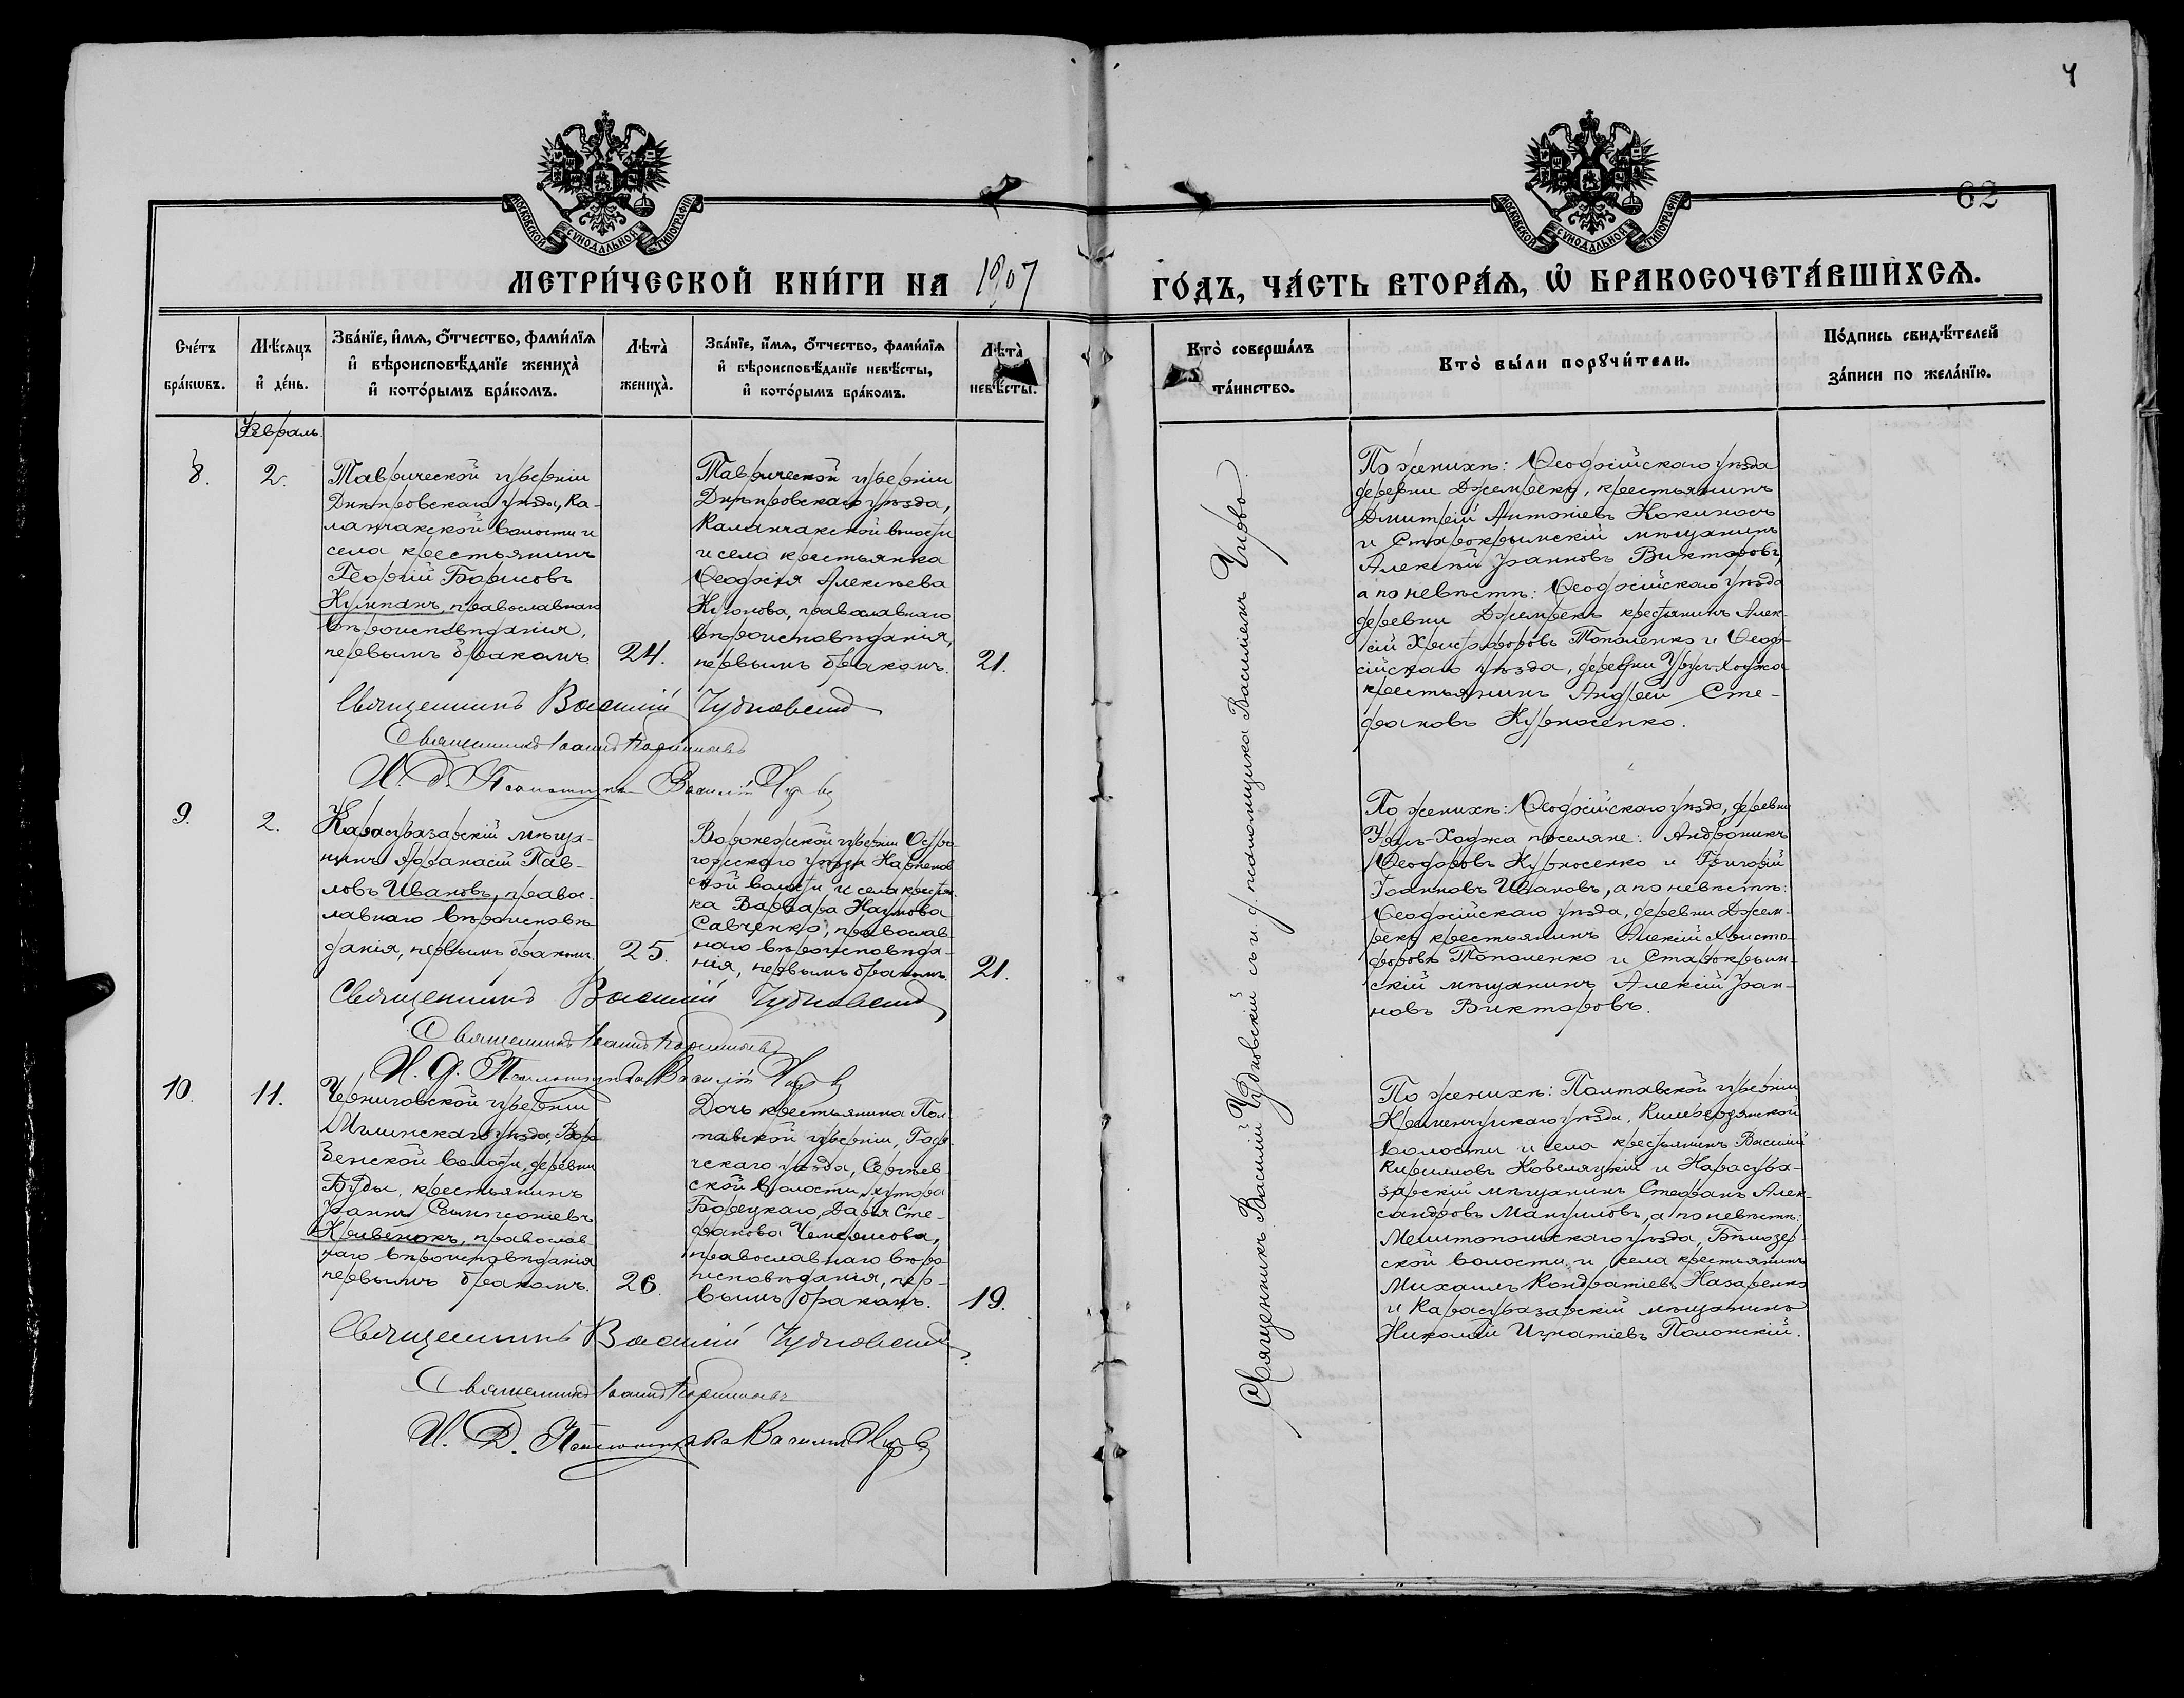 4
62
МОСКОВСКОЙ СѴНОДАЛЬНОЙ ТИПОГРАФІИ
МОСКОВСКОЙ СѴНОДАЛЬНОЙ ТИПОГРАФІИ
МЕТРИ́ЧЕСКОЙ КНИ́ГИ НА 1907
ГО́ДЪ, ЧА́СТЬ ВТОРА́Ѧ, Ѽ БРАКОСОЧЕТА́ВШИХСѦ.
Сче́тъ бра́кѡвъ.
Мѣ́сяцъ и҆ де́нь.
Зва́нїе, и҆́мѧ, ѻ҆́тчество, фами́лїѧ
и҆ вѣроисповѣ́данїе жениха̀
и҆ кото́рымъ бра́комъ.
Лѣта̀ жениха̀.
Зва́нїе, и҆́мѧ, ѻ҆́тчество, фами́лїѧ
и҆ вѣроисповѣ́данїе невѣ́сты,
и҆ кото́рымъ бра́комъ.
Лѣта̀ невѣ́сты.
Кто̀ соверша́лъ та́инство.
Кто̀ бы́ли порꙋчи́тели.
По́дпись свидѣ́телей
за́писи по жела́нїю.
Февраль.
8.
2.
Таврической губерніи
Днѣпровскаго уѣзда, Ка-
ланчакской волости и
села крестьянинъ
Георгій Борисовъ
Кулипанъ, православнаго
вѣроисповѣданія,
первымъ бракомъ
24.
Таврической губерніи
Днѣпровскаго уѣзда,
Каланчакской волости
и села крестьянка
Ѳеодосія Алексѣева
православнаго
вѣроисповѣданія,
первымъ бракомъ.
21.
Священникъ Василій Чудновскій
Священникъ Іоаннъ
И. Д. Псаломщика Василій
По женихѣ: Ѳеодосійскаго уѣзда
деревни Джемрекъ, крестьянинъ
Дмитрій Антоніевъ Кокиносъ
и Старокрымскій мѣщанинъ
Алексѣй Іоанновъ Викторовъ,
а по невѣстѣ: Ѳеодосійскаго уѣзда
деревни Джемрекъ крестьянинъ Алек-
сій Христофоровъ Тополенко и Ѳеодо-
сійскаго уѣзда, деревни Урусъ-Ходжа
крестьянинъ Андрей Сте-
фановъ Курносенко.
9.
2.
Карасубазарскій мѣща-
нинъ Аѳанасій Пав-
ловъ Ивановъ, правос-
лавнаго вѣроисповѣ-
данія, первымъ бракомъ.
25.
Воронежской губерніи Остро-
гожскаго уѣзда
ской волости и села крестьян-
ка Варвара Наумова
Савченко, православ-
наго вѣроисповѣда-
нія, первымъ бракомъ.
21.
Священникъ Василій Чудновскій
Священникъ Іоаннъ
И. Д. Псаломщика Василій
По женихѣ: Ѳеодосійскаго уѣзда, деревни
Урусъ-Ходжа поселяне: Андроникъ
Ѳеодоровъ Курносенко и Григорій
Іоанновъ Ивановъ, а по невѣстѣ:
Ѳеодосійскаго уѣзда, деревни Джем-
рекъ крестьянинъ Алексій Христо-
форовъ Тополенко и Старокрым-
скій мѣщанинъ Алексій Іоан-
новъ Викторовъ.
10.
11.
Черниговской губерніи
Мглинскаго уѣзда,
волости, деревни
Буды, крестьянинъ
Іоаннъ Сампсоніевъ
Кривенокъ, православ-
наго вѣроисповѣданія
первымъ бракомъ.
26.
Дочь крестьянина Пол-
тавской губерніи, Гадя-
чскаго уѣзда, Сергѣев-
ской волости, хутора
Дарья Сте-
фанова
православнаго вѣро-
исповѣданія, пер-
вымъ бракомъ.
19.
Священникъ Василій Чудновскій
Священникъ Іоаннъ
И. Д. Псаломщика Василій
По женихѣ: Полтавской губерніи
Кременчугскаго уѣзда,
волости и села крестьянинъ Василій
Кирилловъ Кобеляцкій и Карасуба-
зарскій мѣщанинъ Стефанъ Алек-
сандровъ Мануиловъ, а по невѣстѣ:
Мелитопольскаго уѣзда, Бѣлозер-
ской волости и села крестьянинъ
Михаилъ Кондратіевъ Назаренко
и Карасубазарскій мѣщанинъ
Николай Игнатіевъ Полонскій.
Священникъ Василій Чудновскій съ и. д. псаломщика Василіемъ